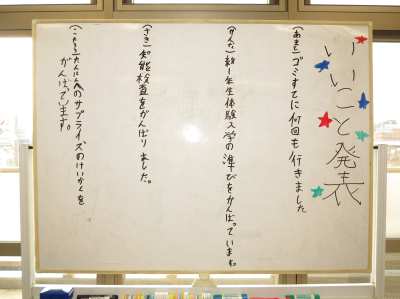 いいこと発表
(あまね)ゴミすてに何回も行きました
(かんな)新1年生体験入学の準びをがんばっています。
(さき)知能検査をがんばりました。
(こころ)たんにんへのサプライズのけいかくを
がんばっています。